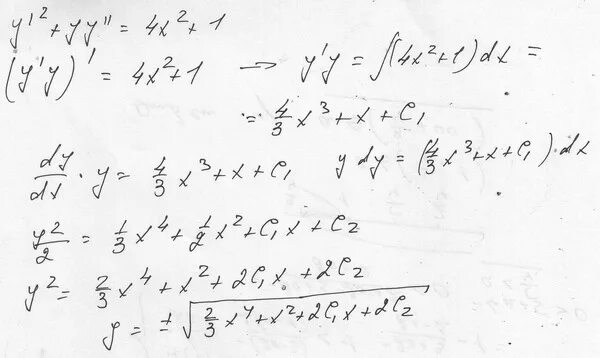 y'² + yy'' = 4x² + 1
(y'y)' = 4x² + 1 → y'y = ∫(4x² + 1)dx =
= 4/3 x³ + x + C₁
dy/dx · y = 4/3 x³ + x + C₁ y dy = (4/3 x³ + x + C₁)·dx
y²/2 = 1/3 x⁴ + 1/2 x² + C₁x + C₂
y² = 2/3 x⁴ + x² + 2C₁x + 2C₂
y = ±√(2/3 x⁴ + x² + 2C₁x + 2C₂)